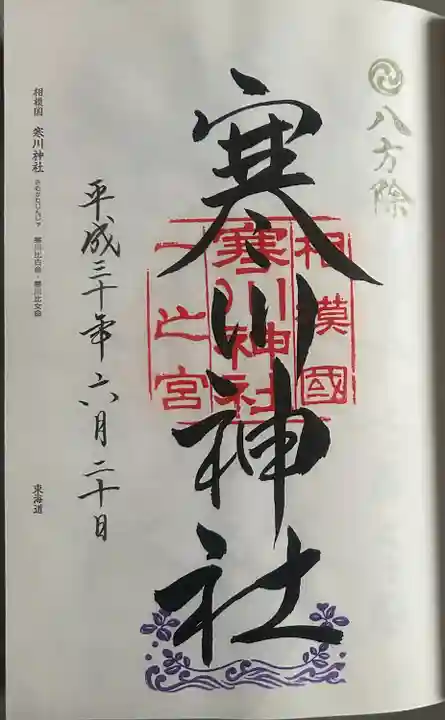 八方除
寒川神社
相模國
寒川神社
一之宮
平成三十年六月二十日
相模国 寒川神社 寒川比古命・寒川比女命
東海道